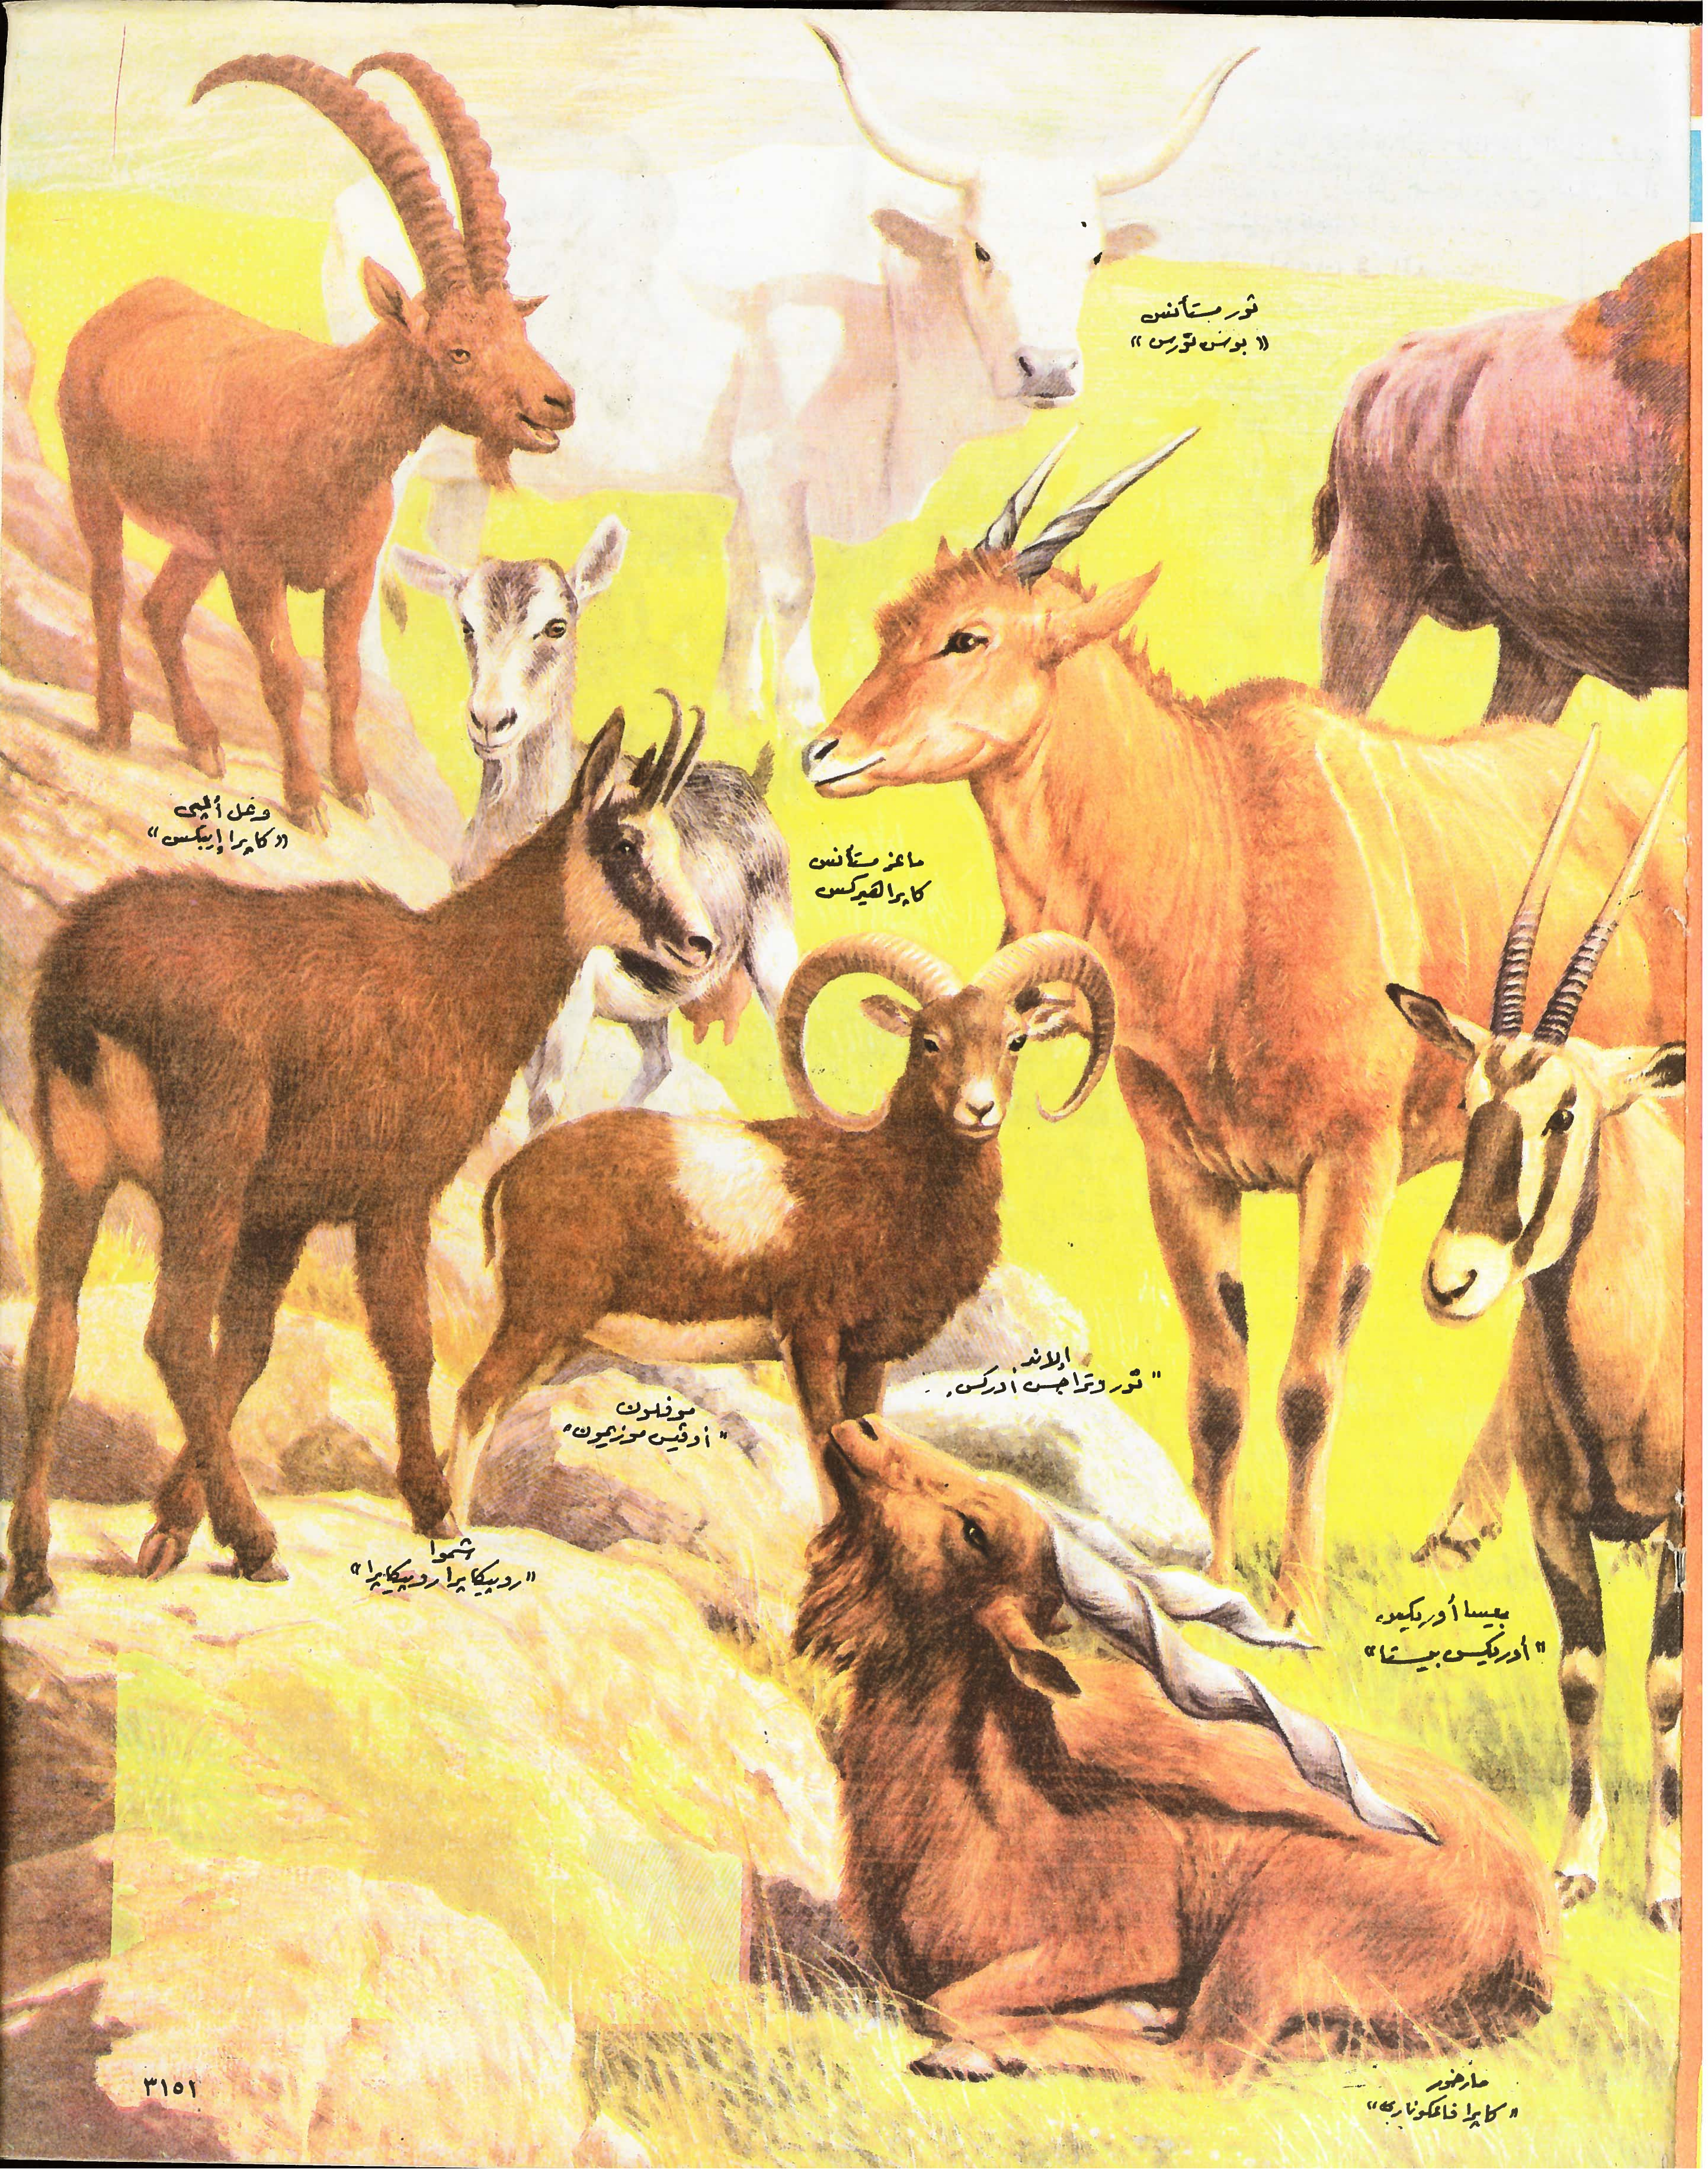 ثور مستأنس
« بوس تورس »
وعل ألپى
« كاپرا إيبكس »
ماعز مستأنس
كاپرا هيركس
إلاند
" تورو تراجس أوركس "
موفلون
" أوڤيس موزيمون "
شموا
« روپيكاپرا روپيكاپرا »
بيسا أوريكس
" أوريكس بيستا "
مارخور
« كاپرا فالكونارى »
٣١٥١